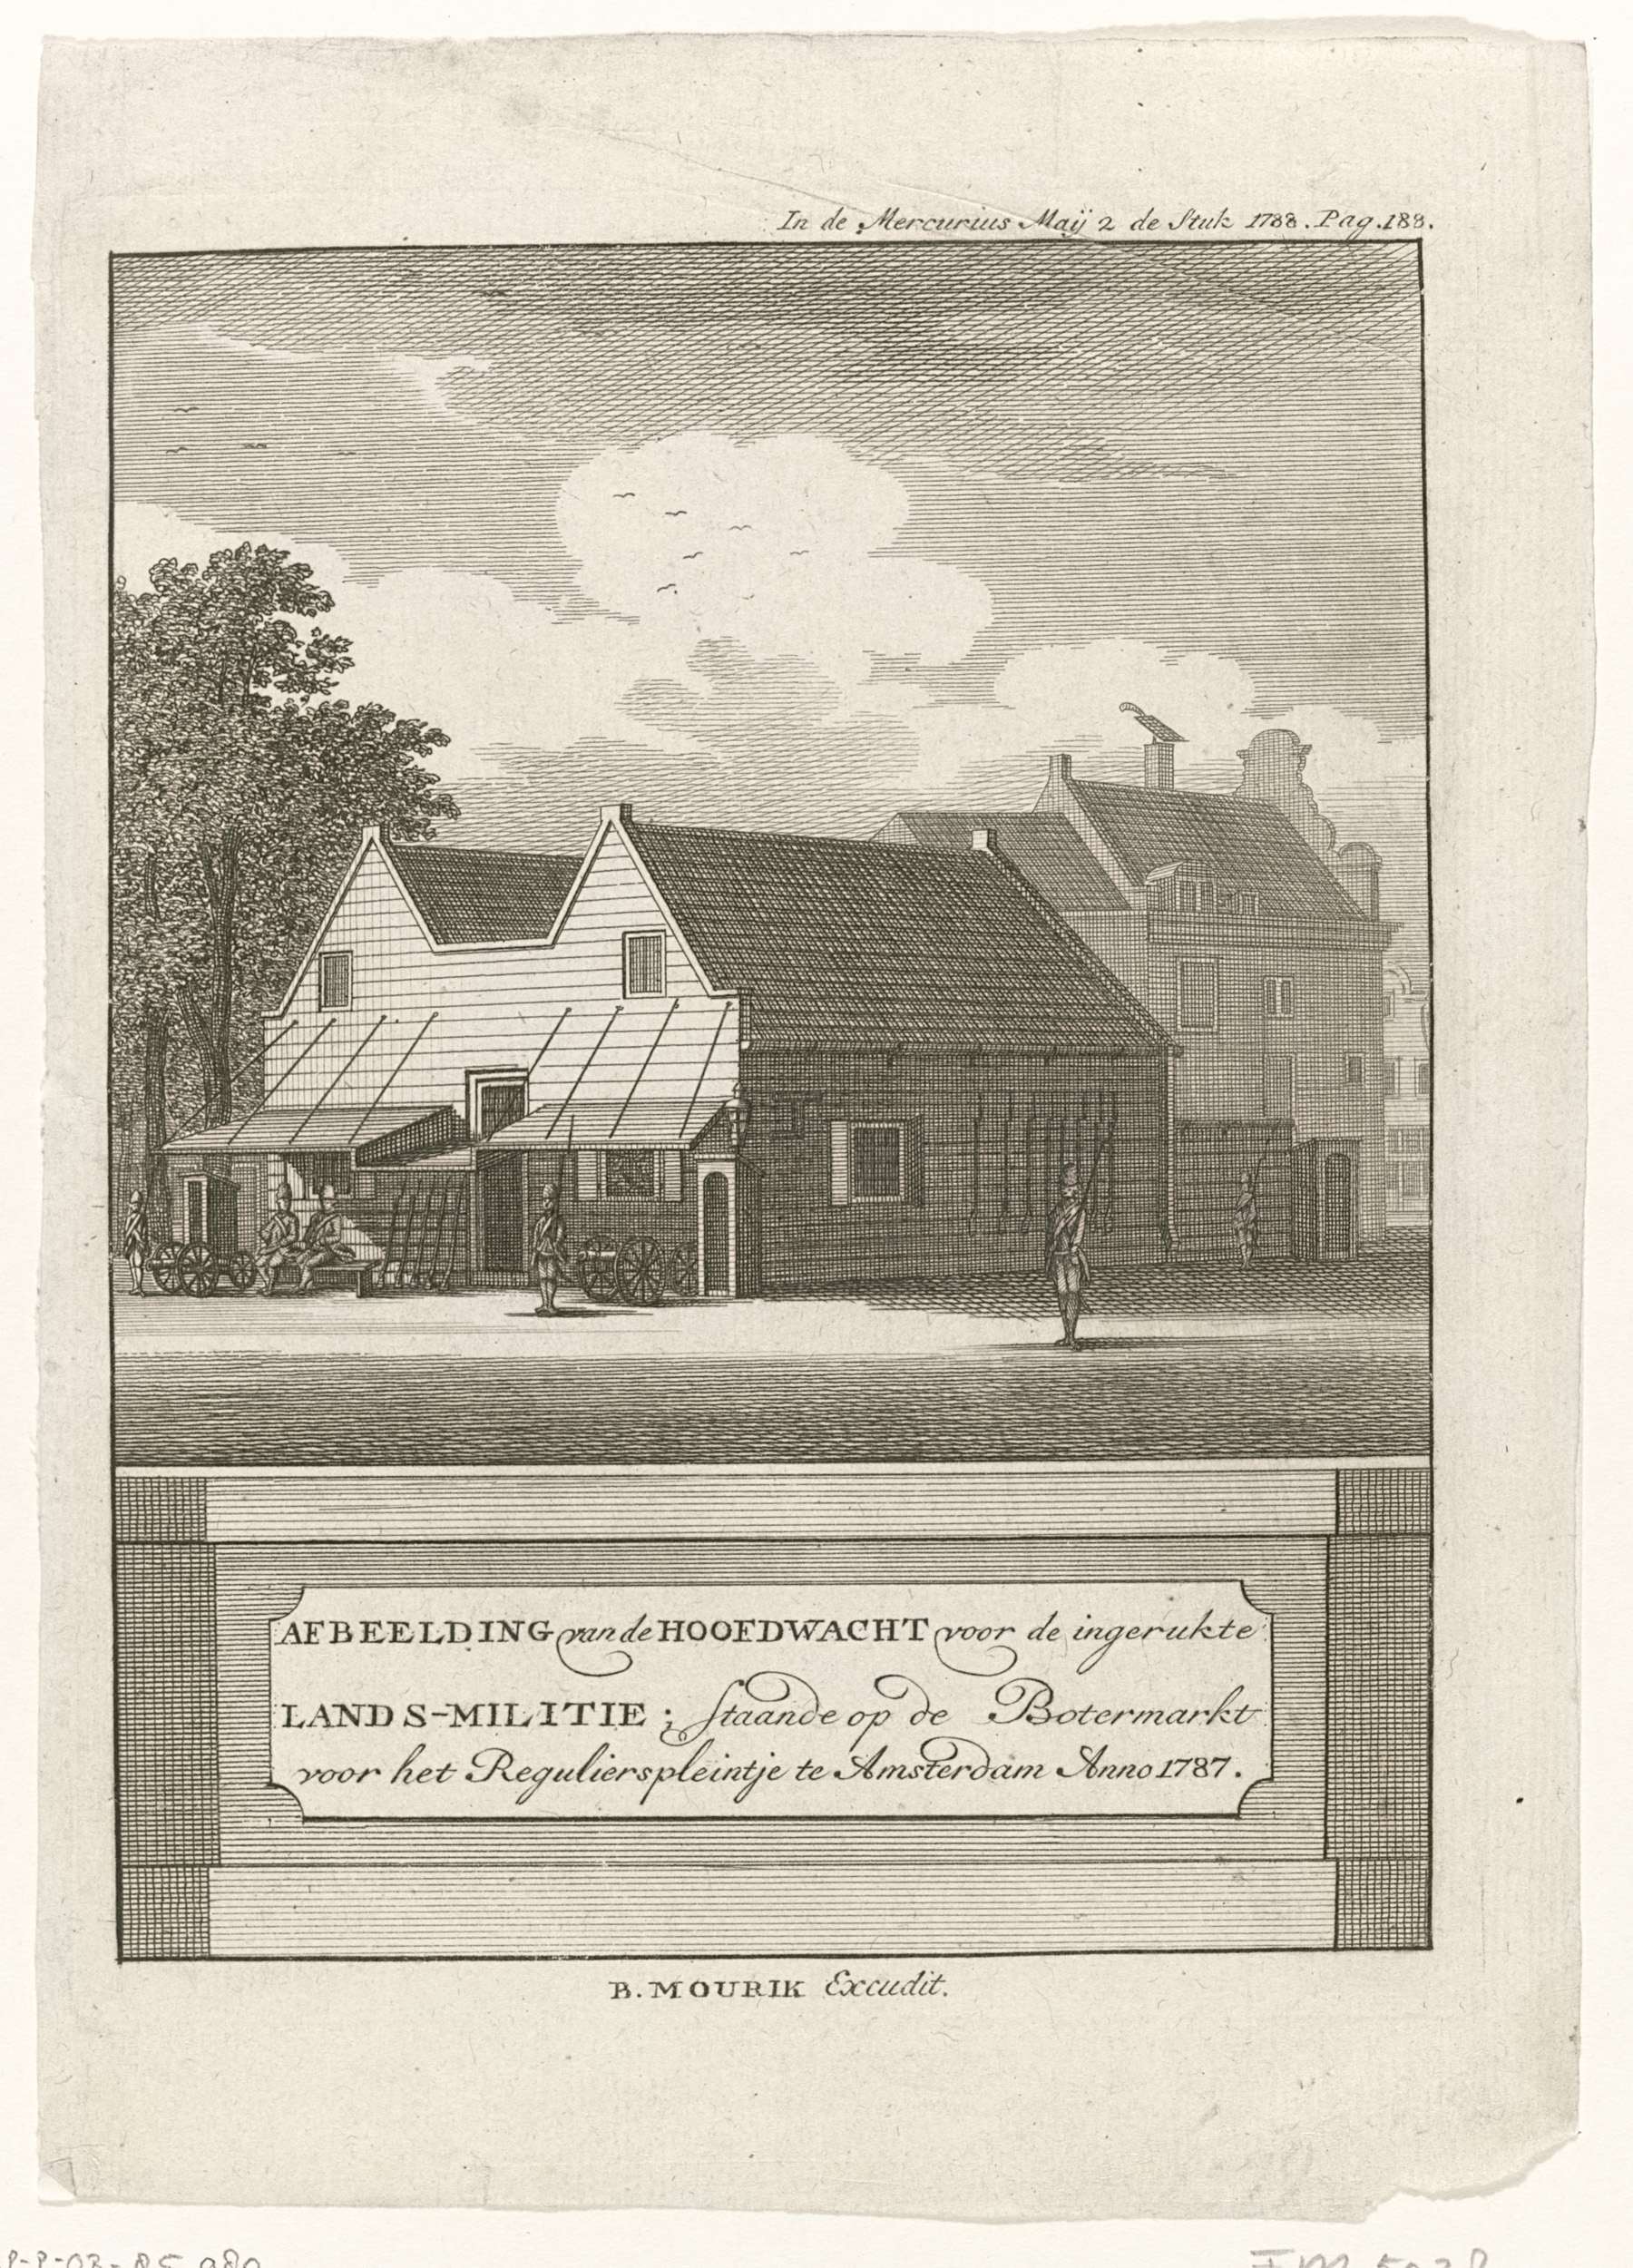 In de Mercurius Maÿ 2 de Stuk 1788. Pag. 188.
AFBEELDING van de HOOFDWACHT voor de ingerukte
LANDS-MILITIE; Staande op de Botermarkt
voor het Regulierspleintje te Amsterdam Anno 1787.
B. MOURIK Excudit.